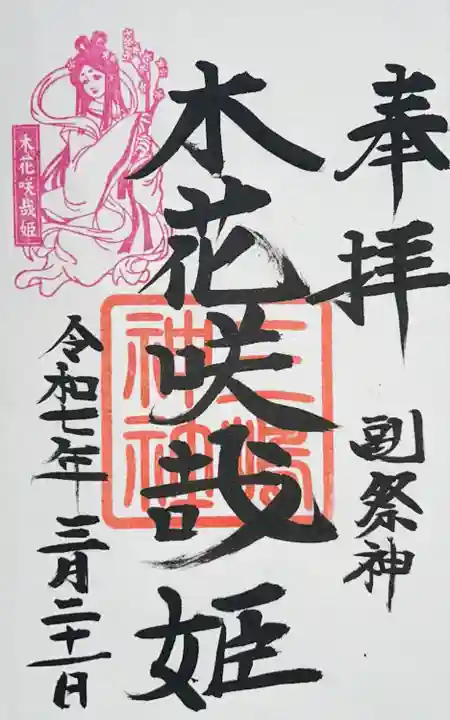 奉拝
副祭神
木花咲哉姫
三嶋神社
木花咲哉姫
令和七年三月二十一日